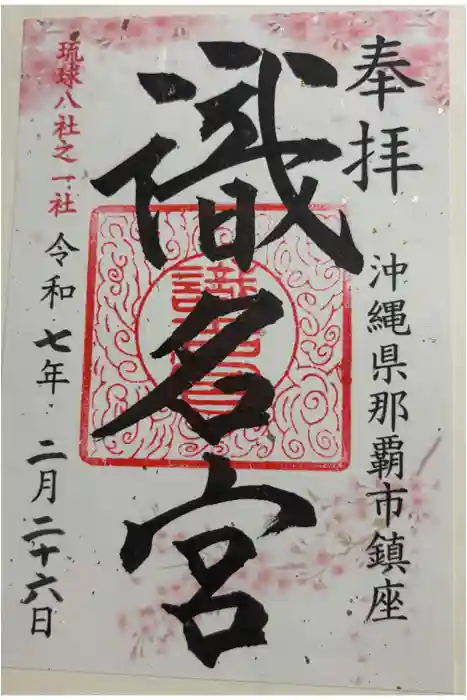 奉拝
沖縄県那覇市鎮座
識名宮
琉球八社之一社
令和七年二月二十六日